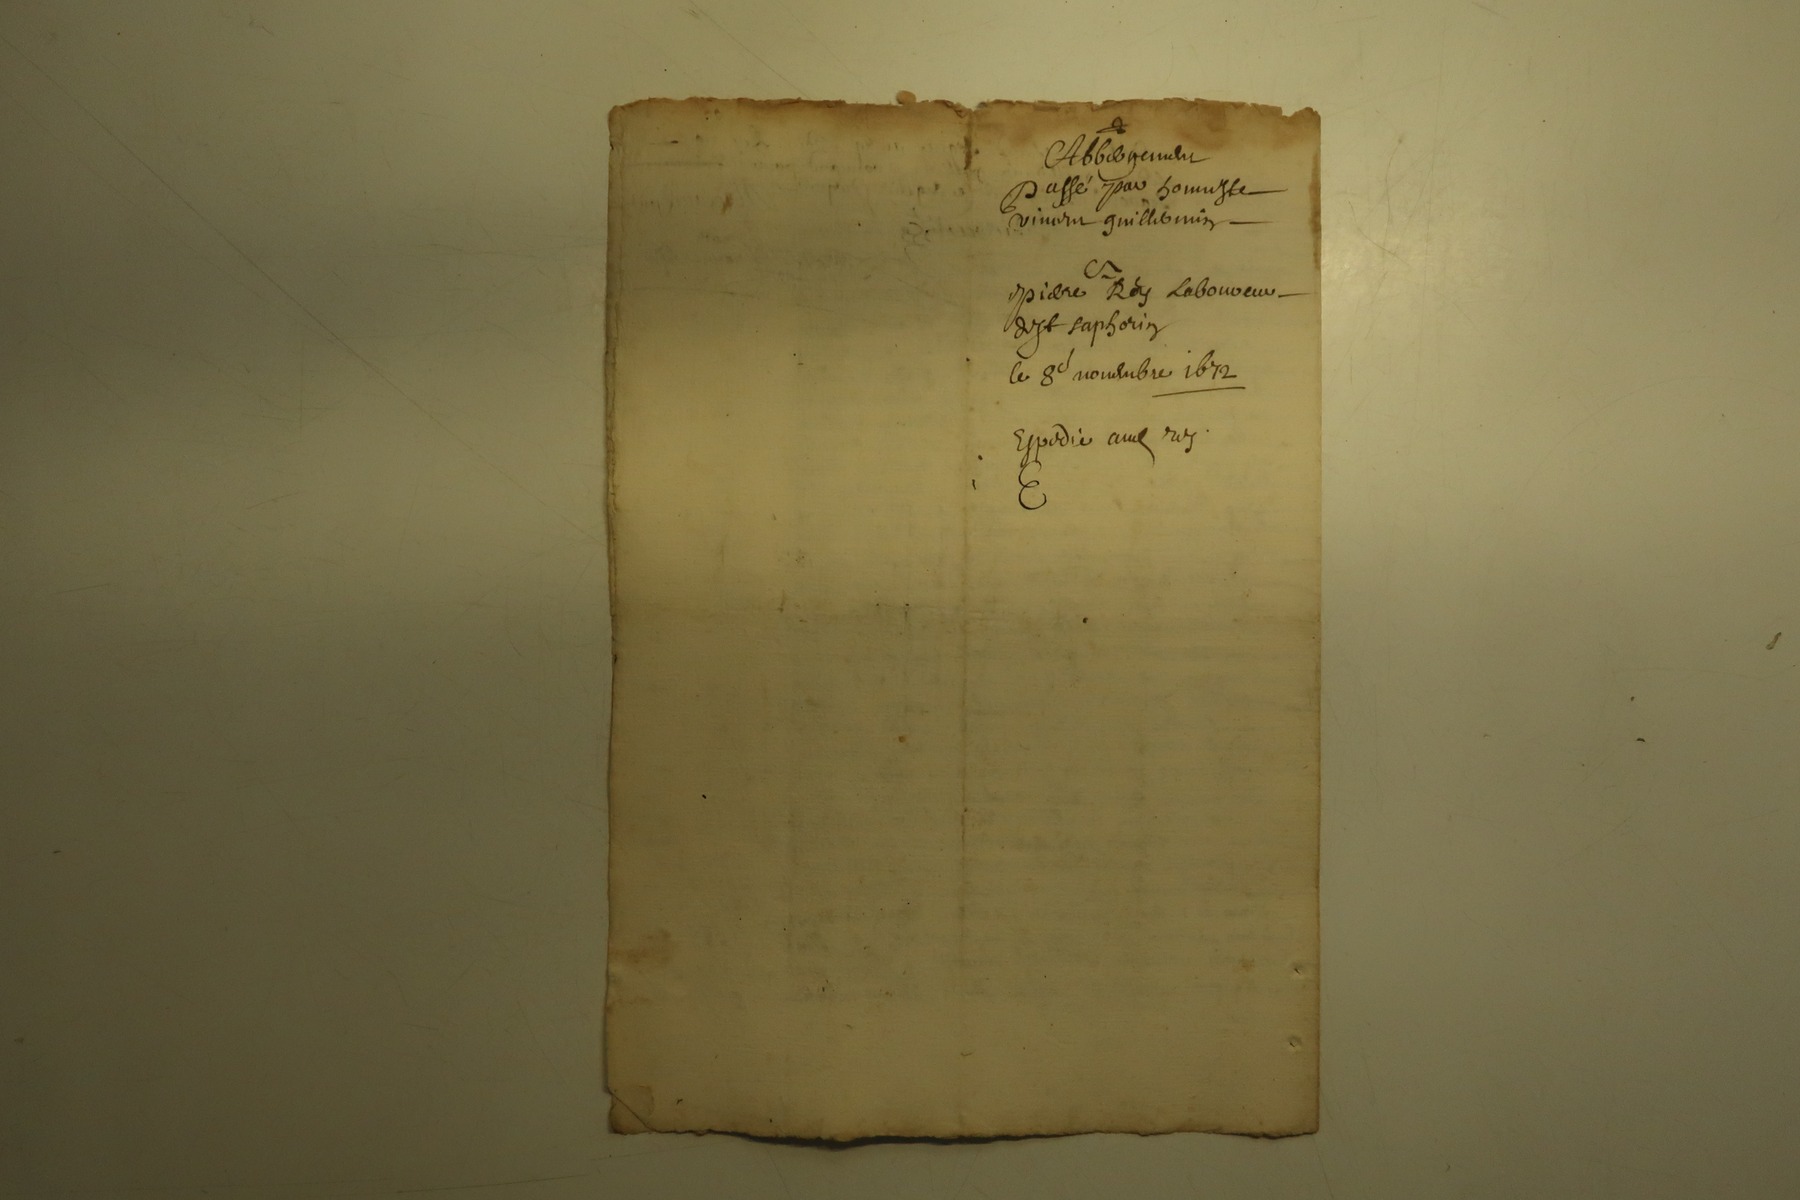 Abbergement
Passé par honneste
vincent guillemin
Et
pierre Rey Laboureur
de st saphorin
le 8e novembre 1672
Expedie aud rey